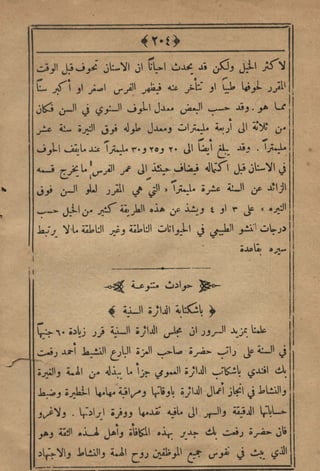 ﴿ ٢٠٤ ﴾
لاكثر الخيل ولكن قد يحدث احيانًا ان الاسنان تجوف قبل الوقت
المقرر لجوفها طبيًا او تتأخر عنه فيظهر الفرس اصغر او أكبر سنًا
مما هو. وقد حسب البعض معدل الجوف السنوي في السن فكان
من ثلاثة الى أربعة مليمترات ومعدل طوله فوق النيرة ستة عشر
مليمترًا. وقد يبلغ أيضًا الى ٢٠ و٢٥ و٣٠ مليمترًا عند مايقف الجوف
في الاسنان قبل اكتماله فيضاف حينئذ الى عمر الفرس ما يخرج قسمه
الزائد عن الستة عشرة مليمترًا «التي هي المقرر لعلو السن فوق
النيرة» على ٣ او ٤ ويشذ عن هذه الطريقة كثير من الخيل حسب
درجات النشو الطبيعي في الحيوانات الناطقة وغير الناطقة ما لا يرتبط
سيره بقاعدة
حوادث متنوعة
﴿ باشكتابة الدائرة السنية ﴾
علمنا بمزيد السرور ان مجلس الدائرة السنية قرر زيادة ٦٠ جنيهًا
في السنة على راتب حضرة صاحب العزة البارع النشيط أحمد رفعت
بك افندي باشكاتب الدائرة العمومي جزأ ما يبذله من الهمة والغيرة
والنشاط في انجاز أعمال الدائرة باوقاتها ومراقبة مهامها الخطيرة وضبط
حساباتها الدقيقة والسهر الى مافيه تقدمها ووفرة ايرادتها. ولاغرو
فان حضرة رفعت بك جدير بهذه المكافأة وأهل لهذه الثقة وهو
الذي يبث في نفوس جميع الموظفين روح الهمة والنشاط والاجتهاد